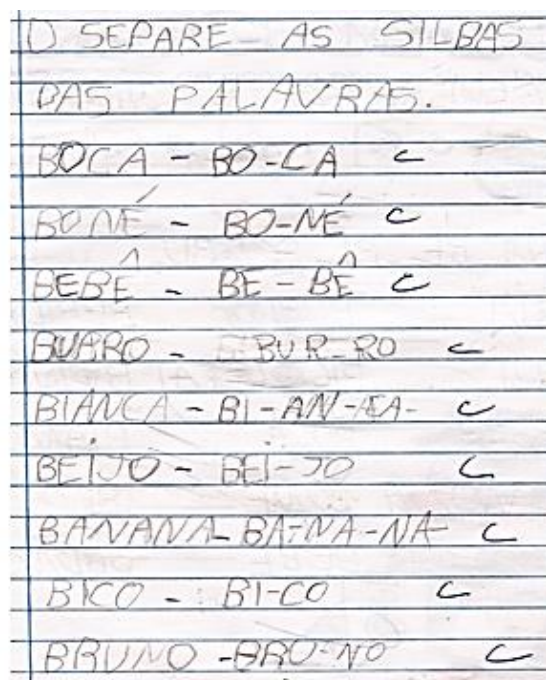 1) SEPARE AS SILBAS
DAS PALAVRAS.
BOCA - BO-CA C
BONÉ - BO-NÉ C
BEBÊ - BE-BÊ C
BURRO - BUR-RO C
BIANCA - BI-AN-CA- C
BEIJO - BEI-JO C
BANANA - BA-NA-NA C
BICO - BI-CO C
BRUNO - BRU-NO C